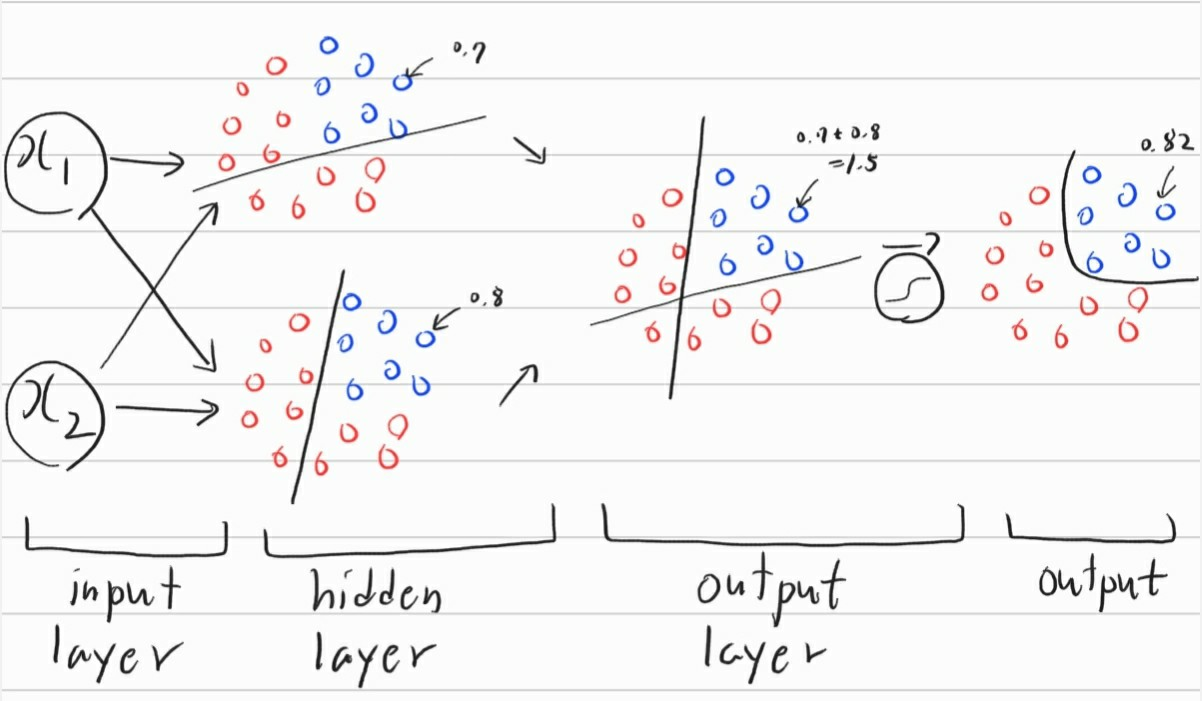 x1
0.7
0.7 + 0.8
=1.5
0.82
x2
0.8
input
layer
hidden
layer
output
layer
output